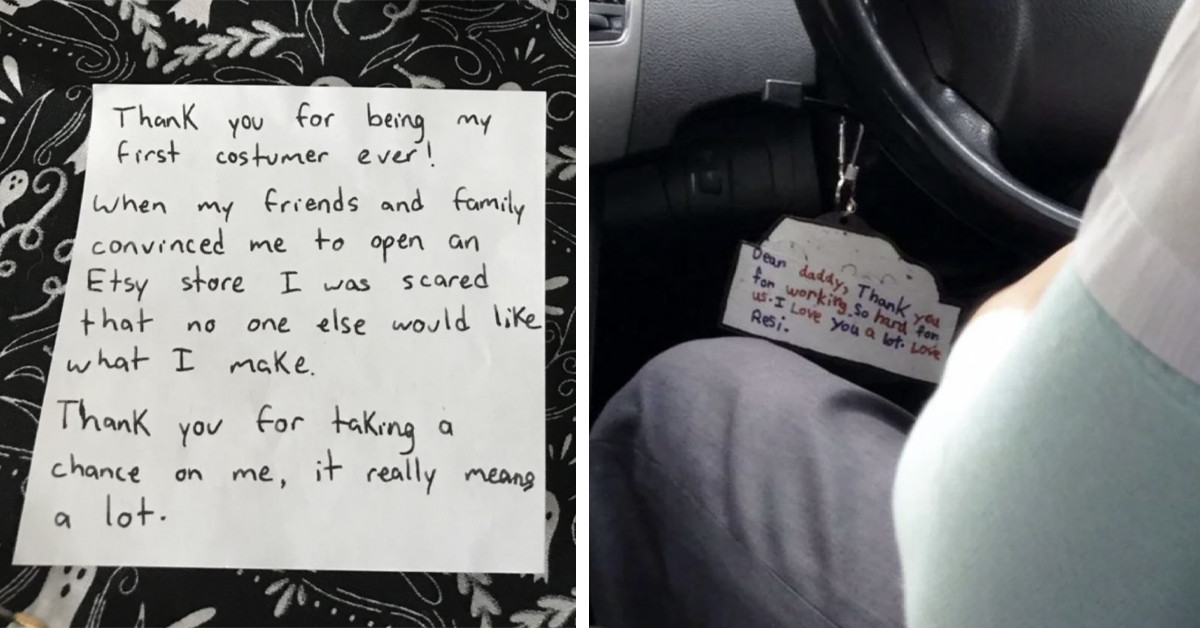 Thank you for being my
first costumer ever!
When my friends and family
convinced me to open an
Etsy store I was scared
that no one else would like
what I make.
Thank you for taking a
chance on me, it really means
a lot.
Dear daddy, Thank you
for working so hard for
us. I Love you a lot. Love
Resi.